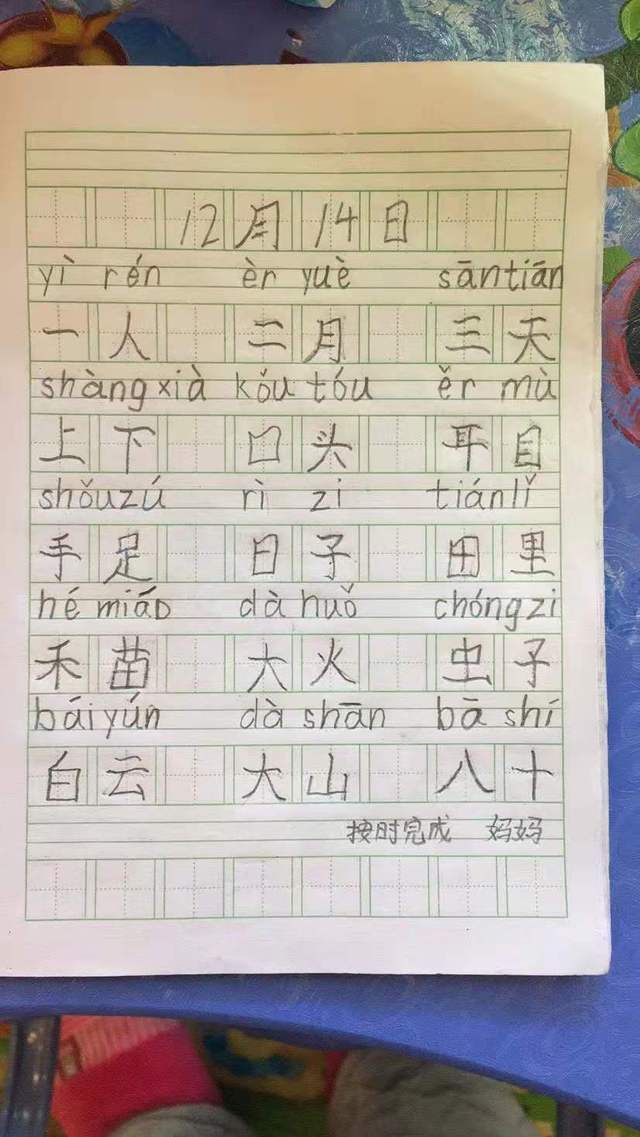 12月14日
yì rén èr yuè sān tiān
一人 二月 三天
shàng xià kóu tóu ěr mù
上下 口头 耳目
shǒu zú rì zi tián lǐ
手足 日子 田里
hé miáo dà huǒ chóng zi
禾苗 大火 虫子
bái yún dà shān bā shí
白云 大山 八十
按时完成 妈妈